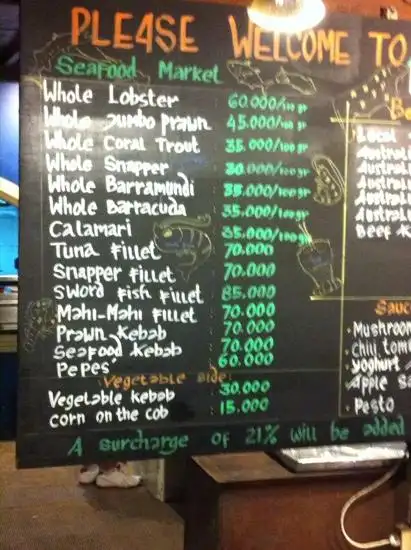 PLEASE WELCOME TO
Seafood Market
Whole Lobster 60.000/100 gr
Whole Jumbo Prawn 45.000/100 gr
Whole Coral Trout 35.000/100 gr
Whole Snapper 30.000/100 gr
Whole Barramundi 35.000/100 gr
Whole Barracuda 35.000/100 gr
Calamari 35.000/100 gr
Tuna Fillet 70.000
Snapper Fillet 70.000
Sword Fish Fillet 85.000
Mahi-Mahi Fillet 70.000
Prawn Kebab 70.000
Seafood Kebab 70.000
Pepes' 60.000
Vegetable side:
Vegetable kebab : 30.000
corn on the cob : 15.000
A surcharge of 21% will be added
Be
Local
Australi
Australi
Australi
Australi
Australi
Beef K
Sauc
• Mushroom
• Chili tom
• yoghurt
• Apple sa
• Pesto